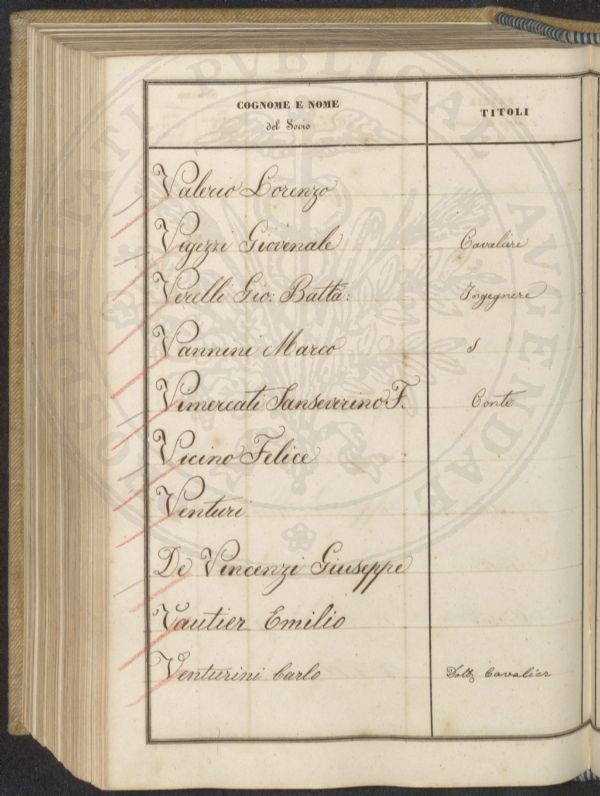 COGNOME E NOME
del Socio
TITOLI
Valerio Lorenzo
Vigezzi Giovenale Cavaliere
Verelli Gio: Batta: Ingegnere
Vannini Marco
Vimercati Sanseverino F. Conte
Vicino Felice
Venturi
De Vincenzi Giuseppe
Vautier Emilio
Venturini Carlo Dott. Cavalier
PROSPERITATI PUBLICAE AUGENDAE